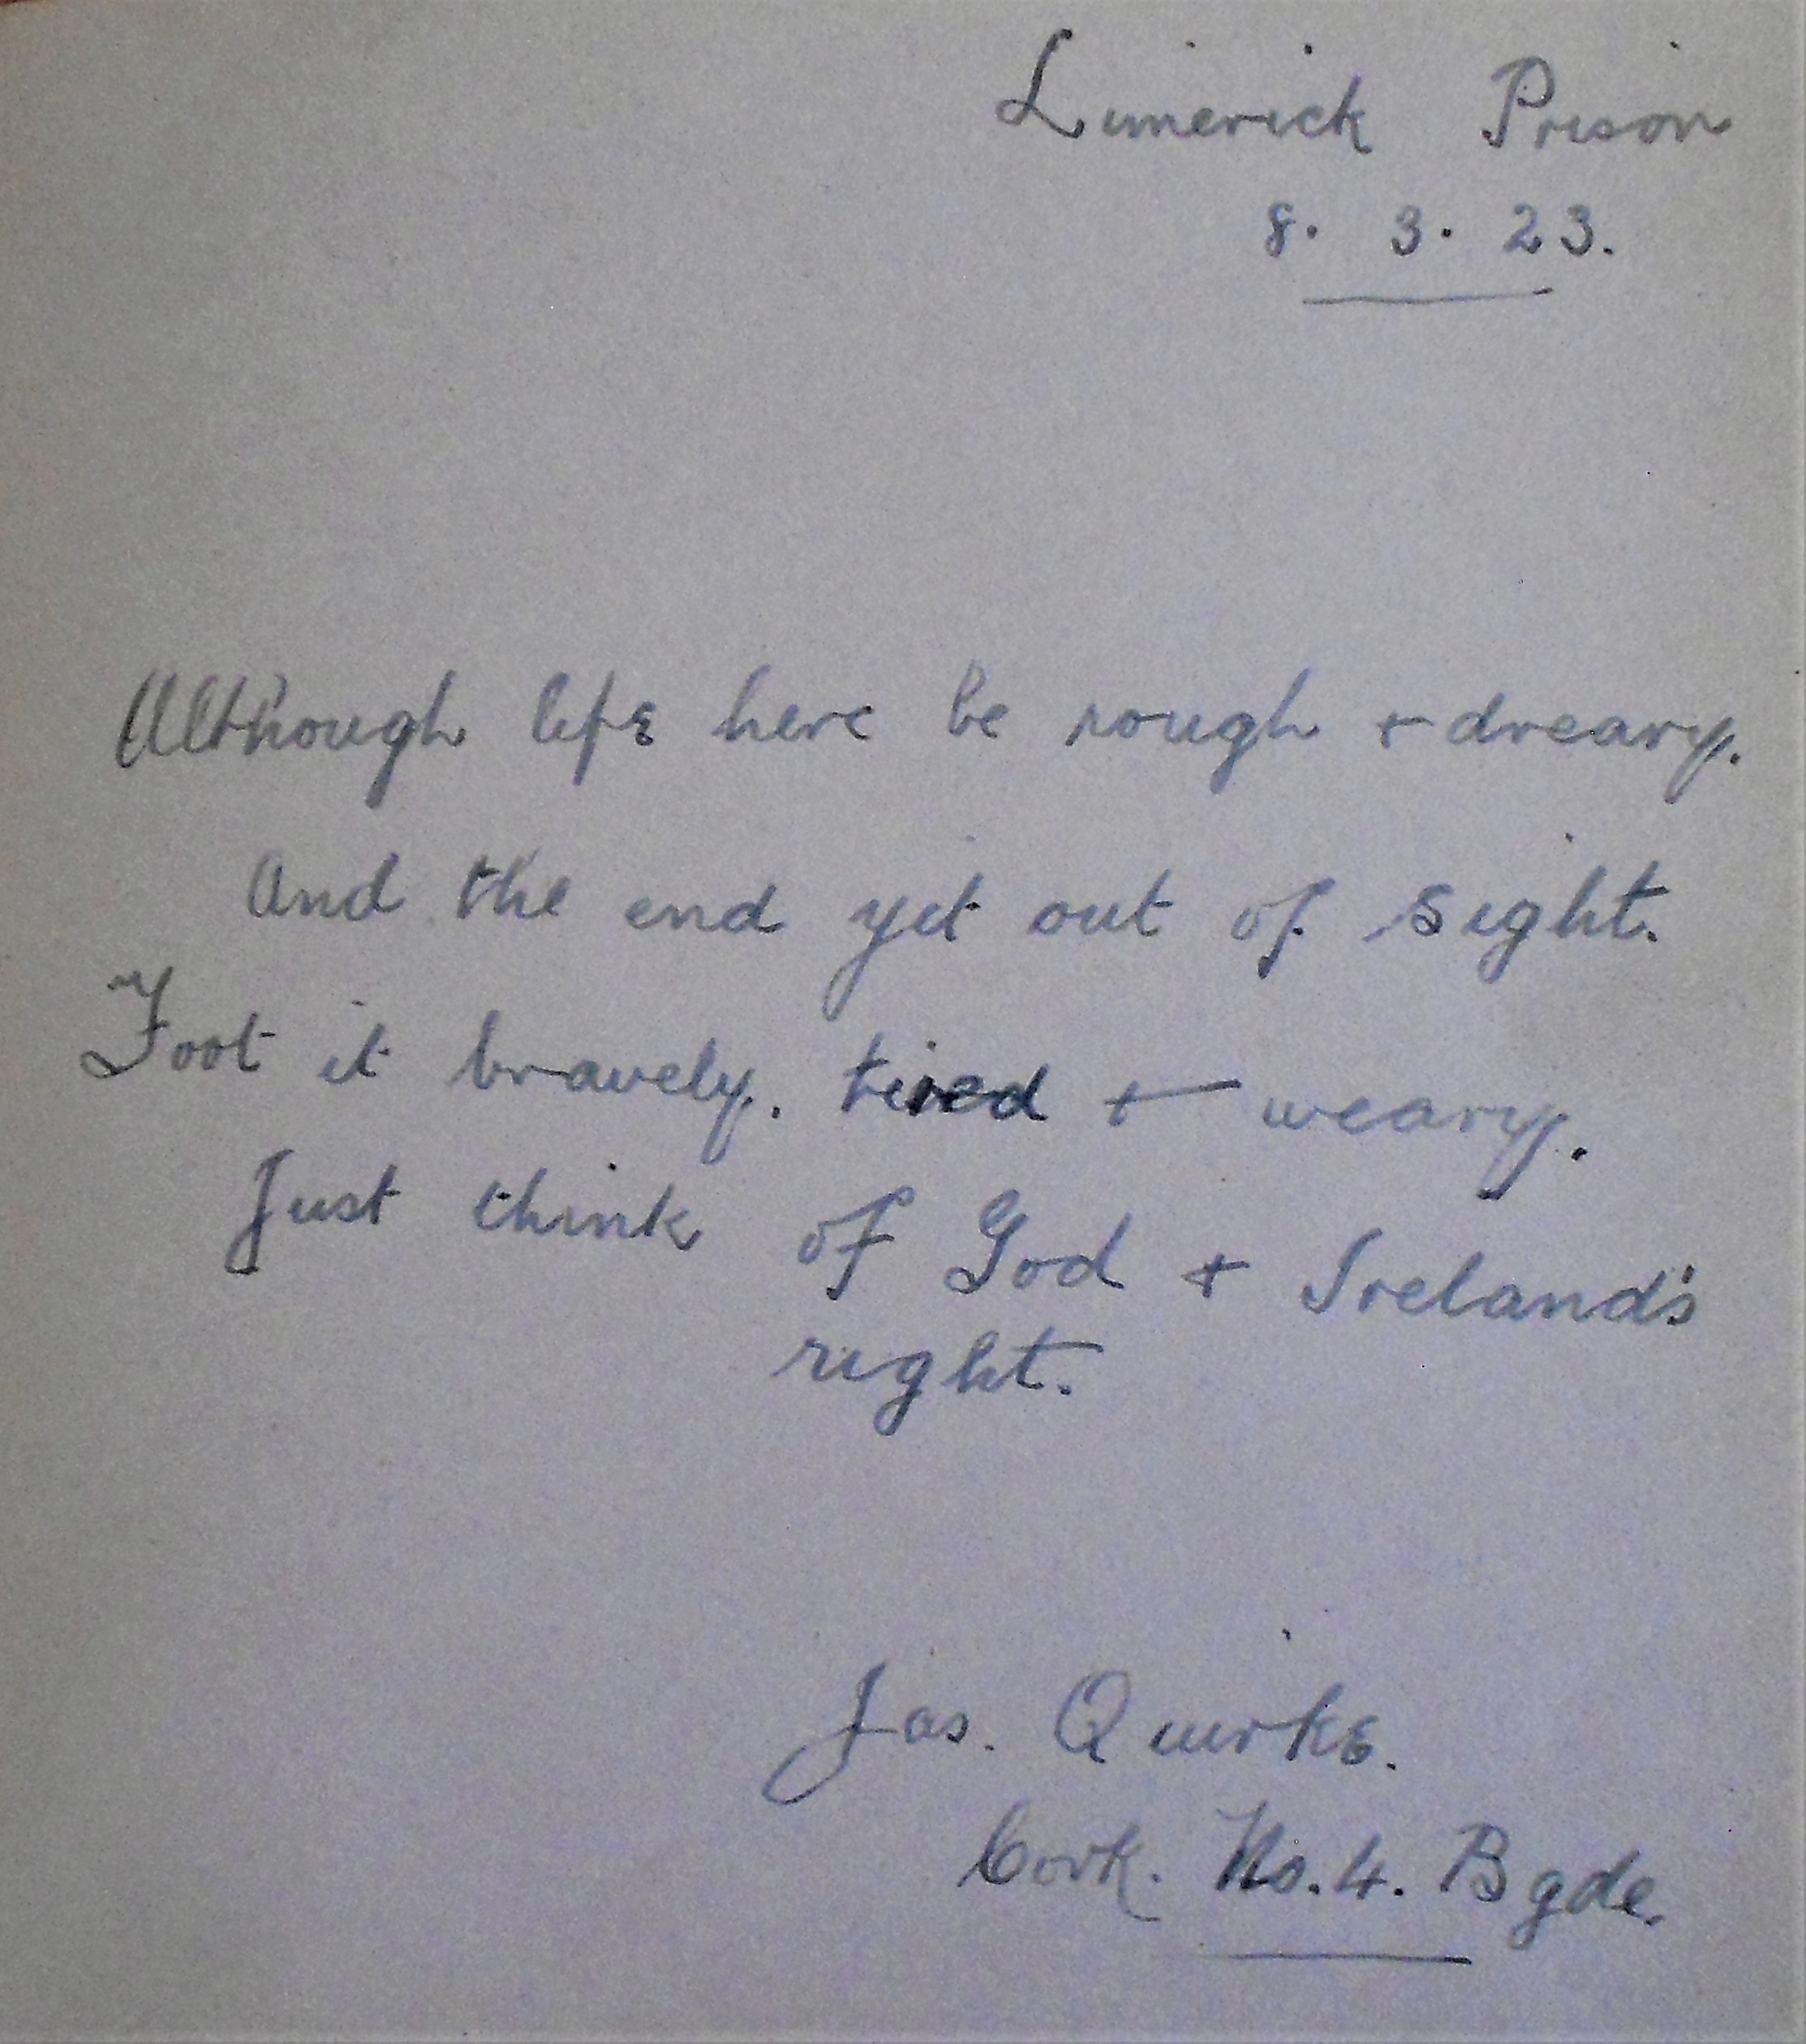 Limerick Prison
8. 3. 23.
Although life here be rough + dreary.
And the end yet out of sight.
Foot it bravely. tired + weary.
Just think of God + Ireland's
right.
Jas. Quirke.
Cork. No. 4. Bgde.